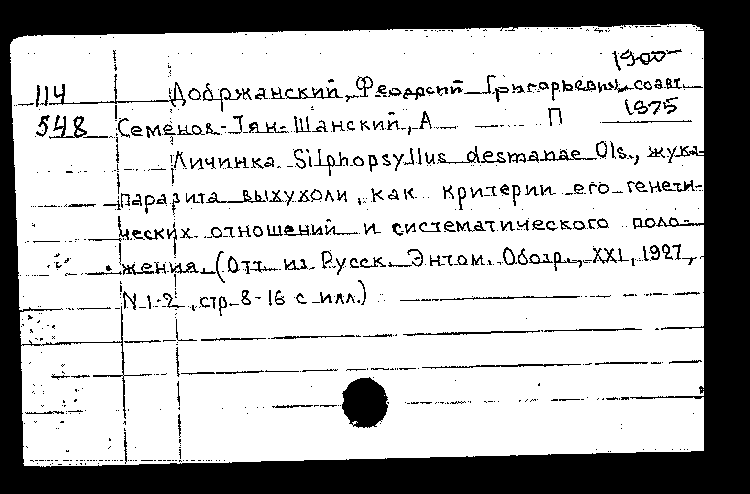 1900
114 Добржанский, Феодосий Григорьевич, соавт.
548 Семенов-Тян-Шанский, А П 1875
Личинка Silphopsyllus desmanae Ols., жука-
паразита выхухоли, как критерии его генети-
ческих отношений и систематического поло-
жения. (Отт. из Русск. Энтом. Обозр., XXI, 1927,
N 1-2, стр. 8-16 с илл.)